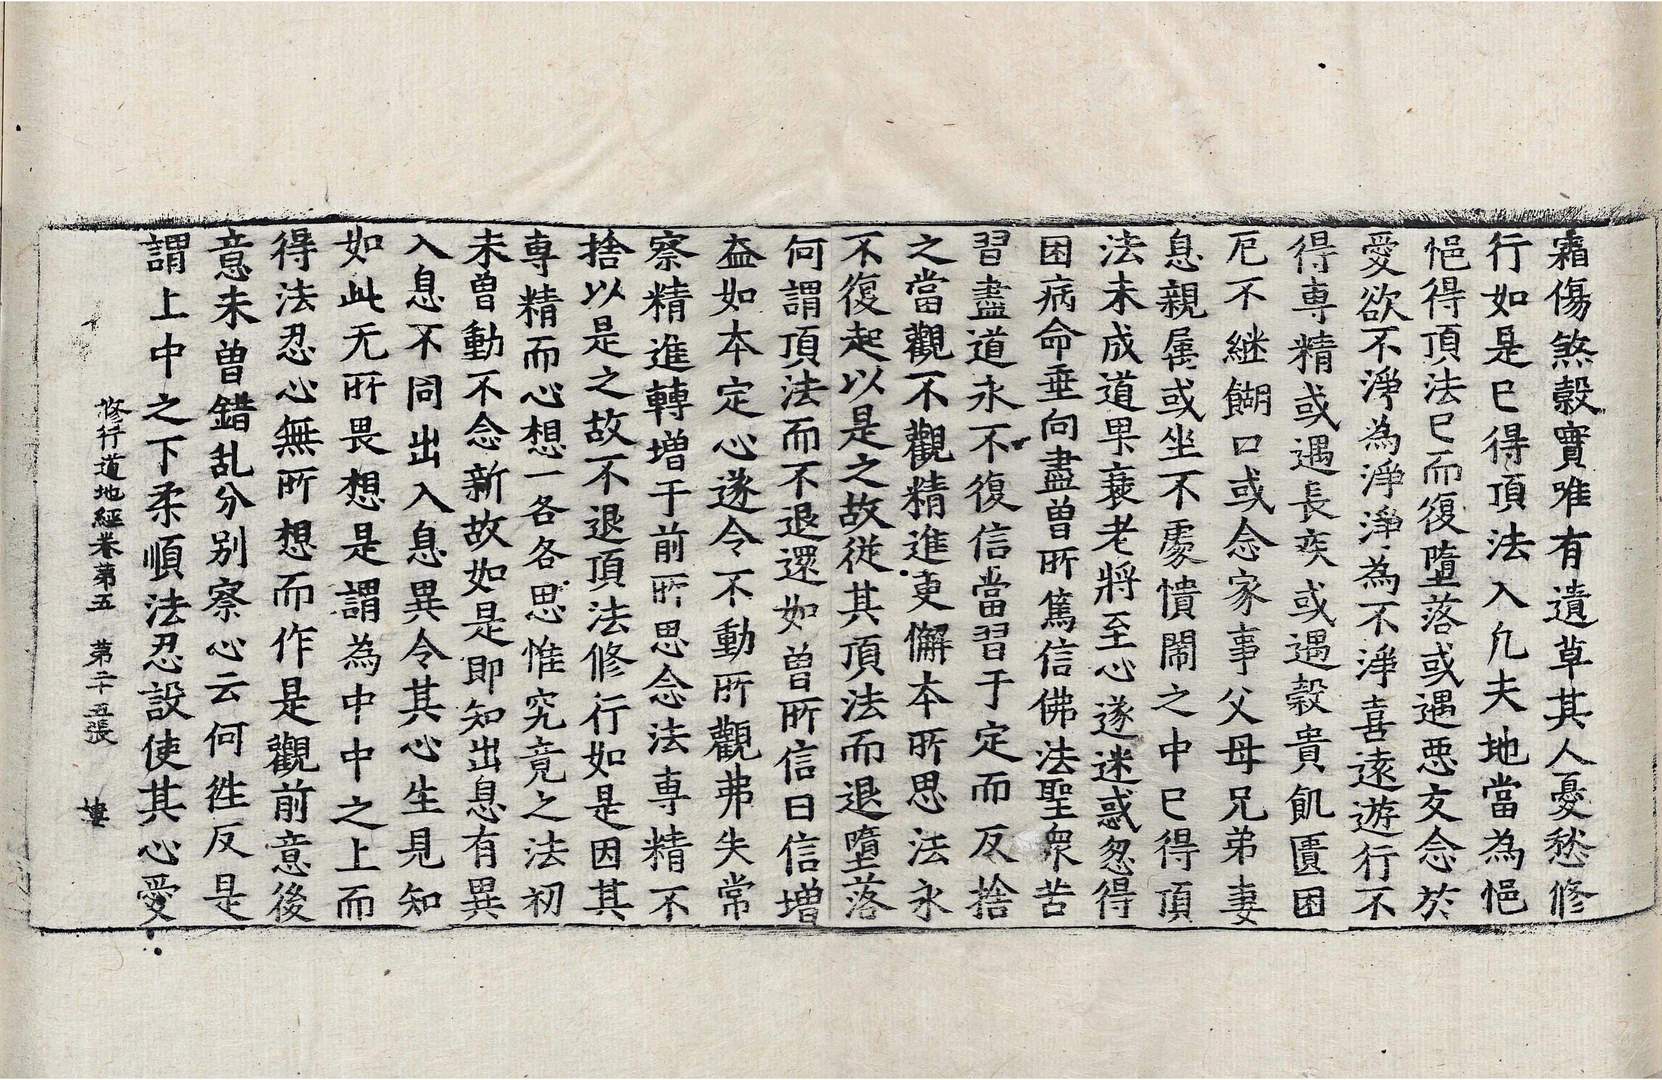 霜傷煞穀實唯有遺草其人憂愁修
行如是已得頂法入凡夫地當為悒
悒得頂法已而復墮落或遇惡友念於
愛欲不淨為淨淨為不淨喜遠遊行不
得専精或遇長疾或遇穀貴飢匱困
厄不継餬口或念家事父母兄弟妻
息親属或坐不處憒閙之中已得頂
法未成道果衰老將至心遂迷惑忽得
困病命垂向盡曾所篤信佛法聖衆苦
習盡道永不復信當習于定而反捨
之當觀不觀精進更懈本所思法永
不復起以是之故従其頂法而退墮落
何謂頂法而不退還如曾所信日信增
益如本定心遂令不動所觀弗失常
察精進轉增于前所思念法専精不
捨以是之故不退頂法修行如是因其
専精而心想一各各思惟究竟之法初
未曾動不念新故如是即知出息有異
入息不同出入息異令其心生見知
如此无所畏想是謂為中中之上而
得法忍心無所想而作是觀前意後
意未曾錯乱分別察心云何徃反是
謂上中之下柔順法忍設使其心愛
修行道地經卷第五　第二十五張　墳